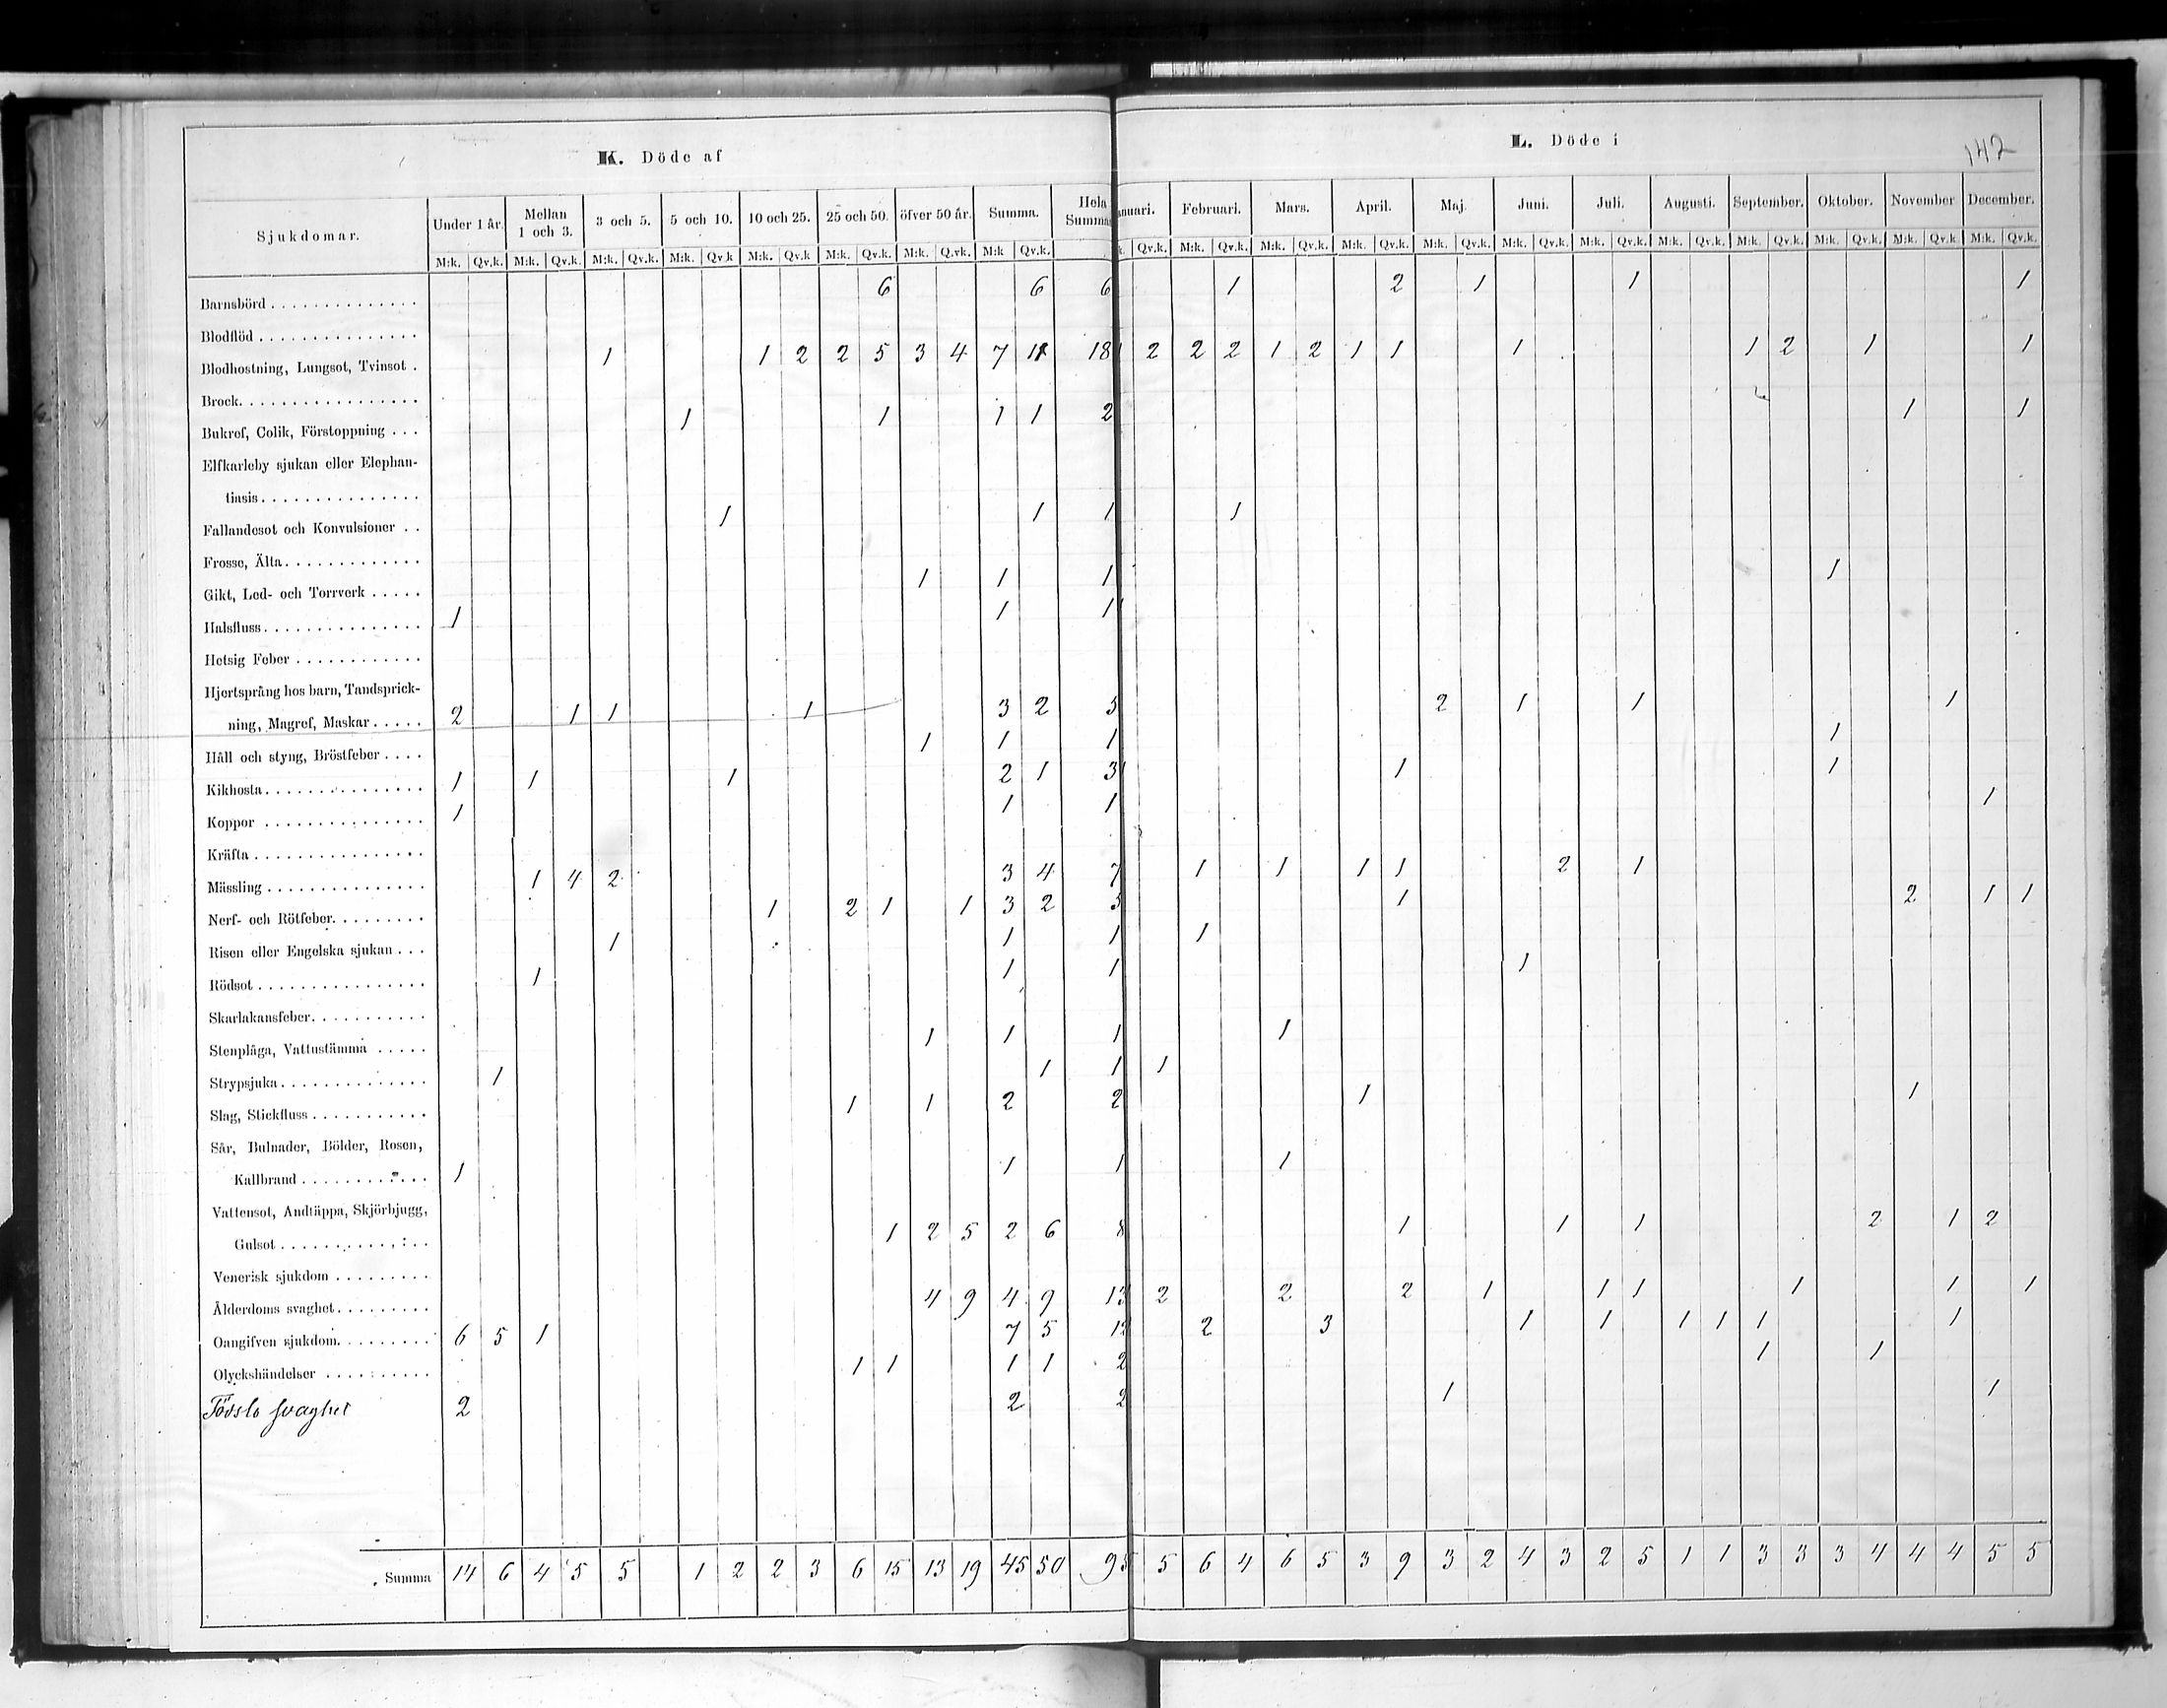 K. Döde af
L. Döde i
142
Sjukdomar. Under 1 år. Mellan 1 och 3. 3 och 5. 5 och 10. 10 och 25. 25 och 50. öfver 50 år. Summa. Hela Summa
nuari. Februari. Mars. April. Maj. Juni. Juli. Augusti. September. Oktober. November December.
M:k. Qv.k. M:k. Qv.k. M:k. Qv.k. M:k. Qv.k M:k. Qv.k M:k. Qv.k. M:k. Q.vk. M:k Qv.k.
k. Qv.k. M:k. Qv.k. M:k. Qv.k. M:k. Qv.k. M:k. Qv.k. M:k. Qv.k. M:k. Qv.k. M:k. Qv.k. M:k. Qv.k. M:k. Qv.k. M:k. Qv.k M:k. Qv.k.
Barnsbörd . . . . 6 6 6 1 2 1 1 1
Blodflöd . . . .
Blodhostning, Lungsot, Tvinsot . 1 1 2 2 5 3 4 7 11 18 1 2 2 2 1 2 1 1 1 1 2 1 1
Brock. . . .
Bukref, Colik, Förstoppning . . . 1 1 1 1 2 1 1
Elfkarleby sjukan eller Elephan-
tiasis . . . .
Fallandesot och Konvulsioner . . 1 1 1 1
Frosse, Älta . . . .
Gikt, Led- och Torrverk . . . . . 1 1 1 1
Halsfluss . . . . 1 1 1 1
Hetsig Feber . . . .
Hjertsprång hos barn, Tandsprick-
ning, Magref, Maskar . . . . . 2 1 1 1 3 2 5 2 1 1 1
Håll och styng, Bröstfeber . . . . 1 1 1 1
Kikhosta . . . . 1 1 1 2 1 3 1 1 1
Koppor . . . . 1 1 1 1
Kräfta . . . .
Mässling . . . . 1 4 2 3 4 7 1 1 1 1 2 1
Nerf- och Rötfeber. . . . 1 2 1 1 3 2 5 1 2 1 1
Risen eller Engelska sjukan . . . 1 1 1 1
Rödsot . . . . 1 1 1 1
Skarlakansfeber. . . .
Stenplåga, Vattustämma . . . . . 1 1 1 1
Strypsjuka . . . . 1 1 1 1
Slag, Stickfluss . . . . 1 1 2 2 1 1
Sår, Bulnader, Bölder, Rosen,
Kallbrand . . . . 1 1 1 1
Vattensot, Andtäppa, Skjörbjugg,
Gulsot . . . . 1 2 5 2 6 8 1 1 1 2 1 2
Venerisk sjukdom . . . .
Ålderdoms svaghet . . . . 4 9 4 9 13 2 2 2 1 1 1 1 1 1
Oangifven sjukdom. . . . 6 5 1 7 5 12 2 3 1 1 1 1 1 1
Olyckshändelser . . . . 1 1 1 1 2 1 1
Födslo svaghet 2 2 2 1 1
Summa 14 6 4 5 5 1 2 2 3 6 15 13 19 45 50 95 5 6 4 6 5 3 9 3 2 4 3 2 5 1 1 3 3 3 4 4 4 5 5